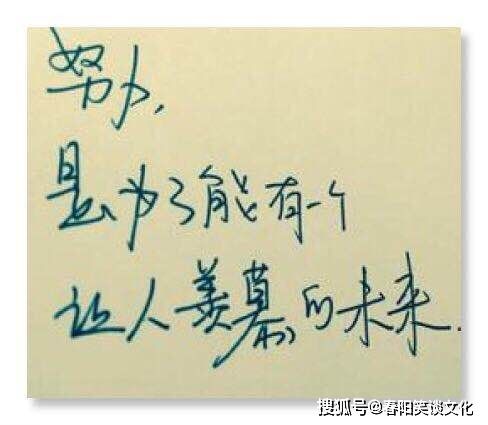 努力,
是为了能有一个
让人羡慕的未来.
搜狐号@春阳笑谈文化